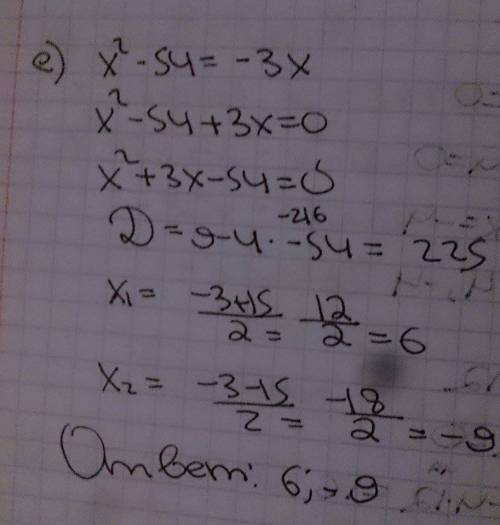 е) x² - 54 = -3x
x² - 54 + 3x = 0
x² + 3x - 54 = 0
-216
D = 9 - 4 · -54 = 225
x₁ = -3+15/2 = 12/2 = 6
x₂ = -3-15/2 = -18/2 = -9
Ответ: 6; -9